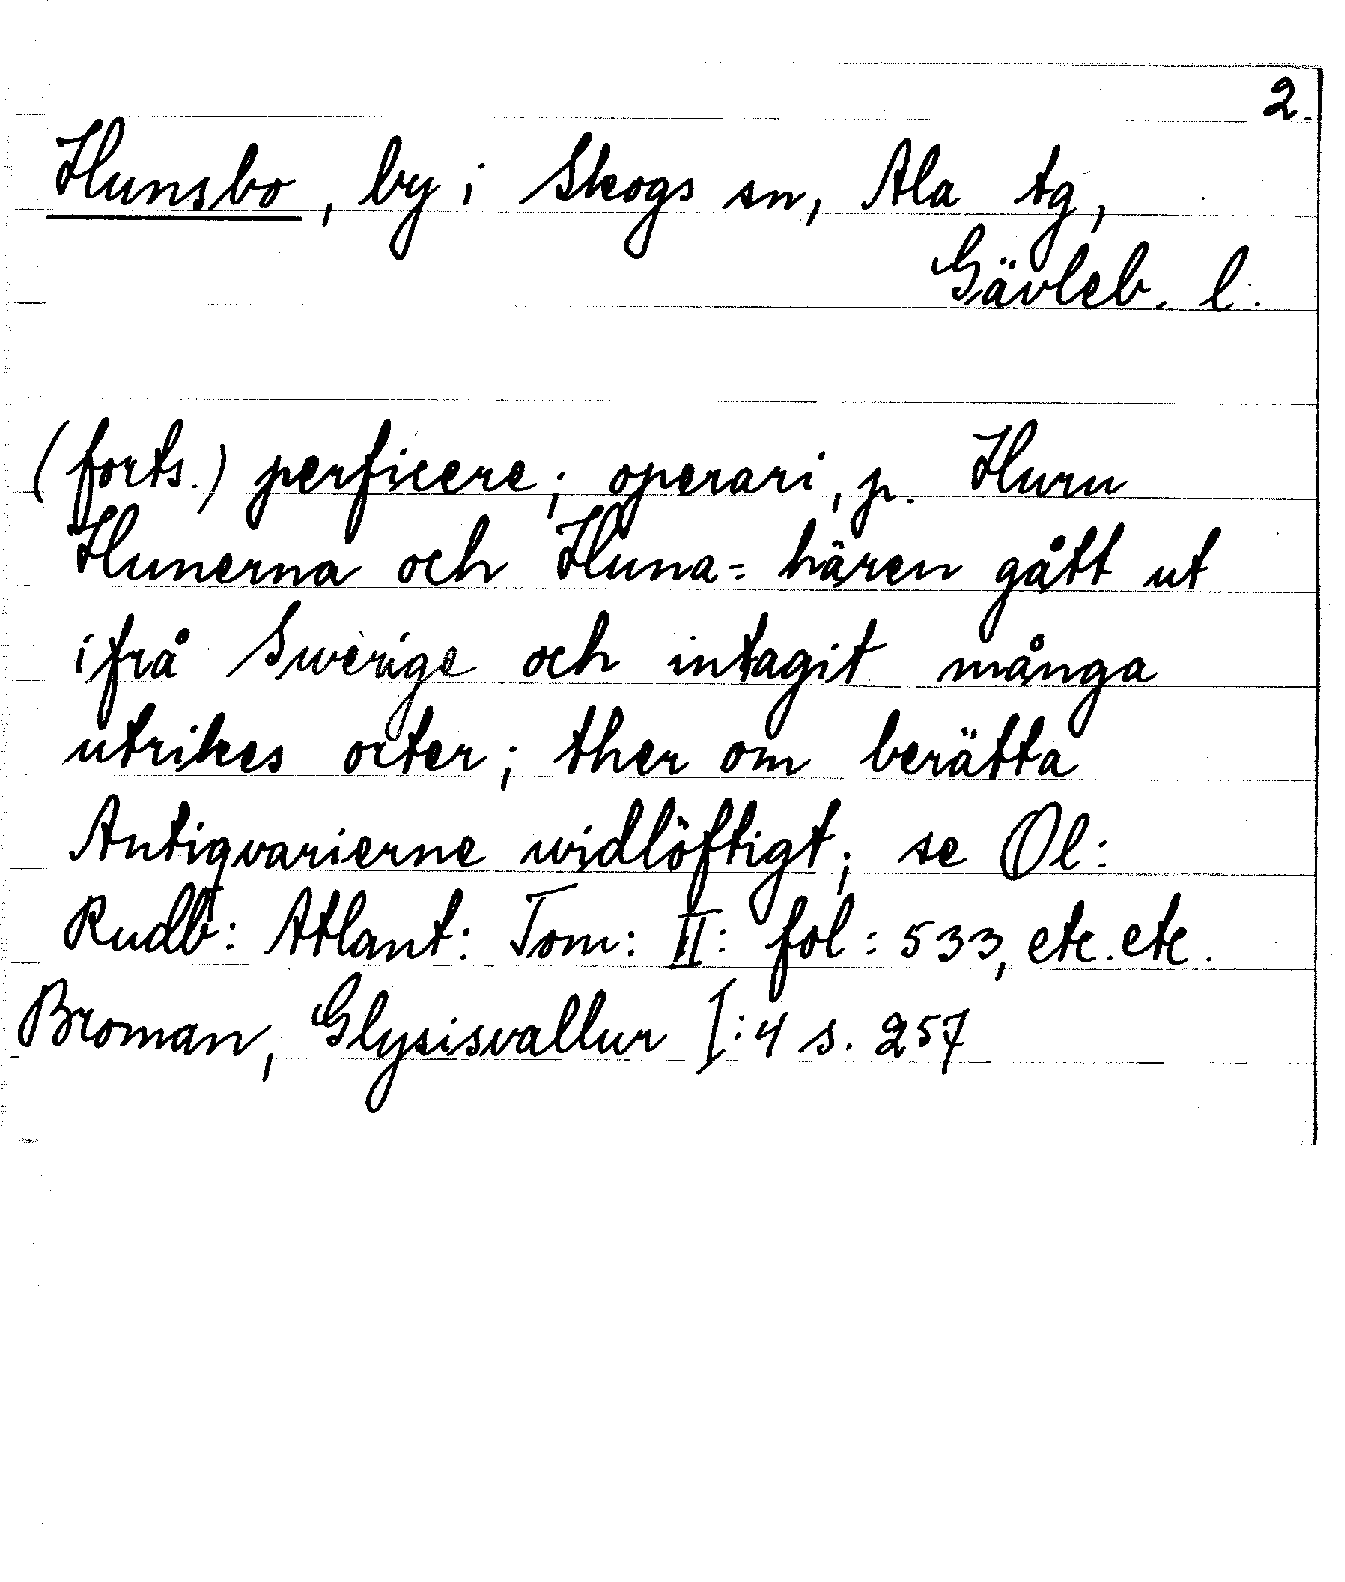 2.
Hunsbo, by i Skogs sn, Ala tg,
Gävleb. l.
(forts.) perficere; operari, p. Huru
Hunerna och Huna= hären gått ut
ifrå Swerige och intagit många
utrikes orter; ther om berätta
Antiqvarierne widlöftigt; se Ol:
Rudb: Atlant: Tom: II: fol: 533, etc. etc.
Broman, Glysisvallur I:4 s. 257